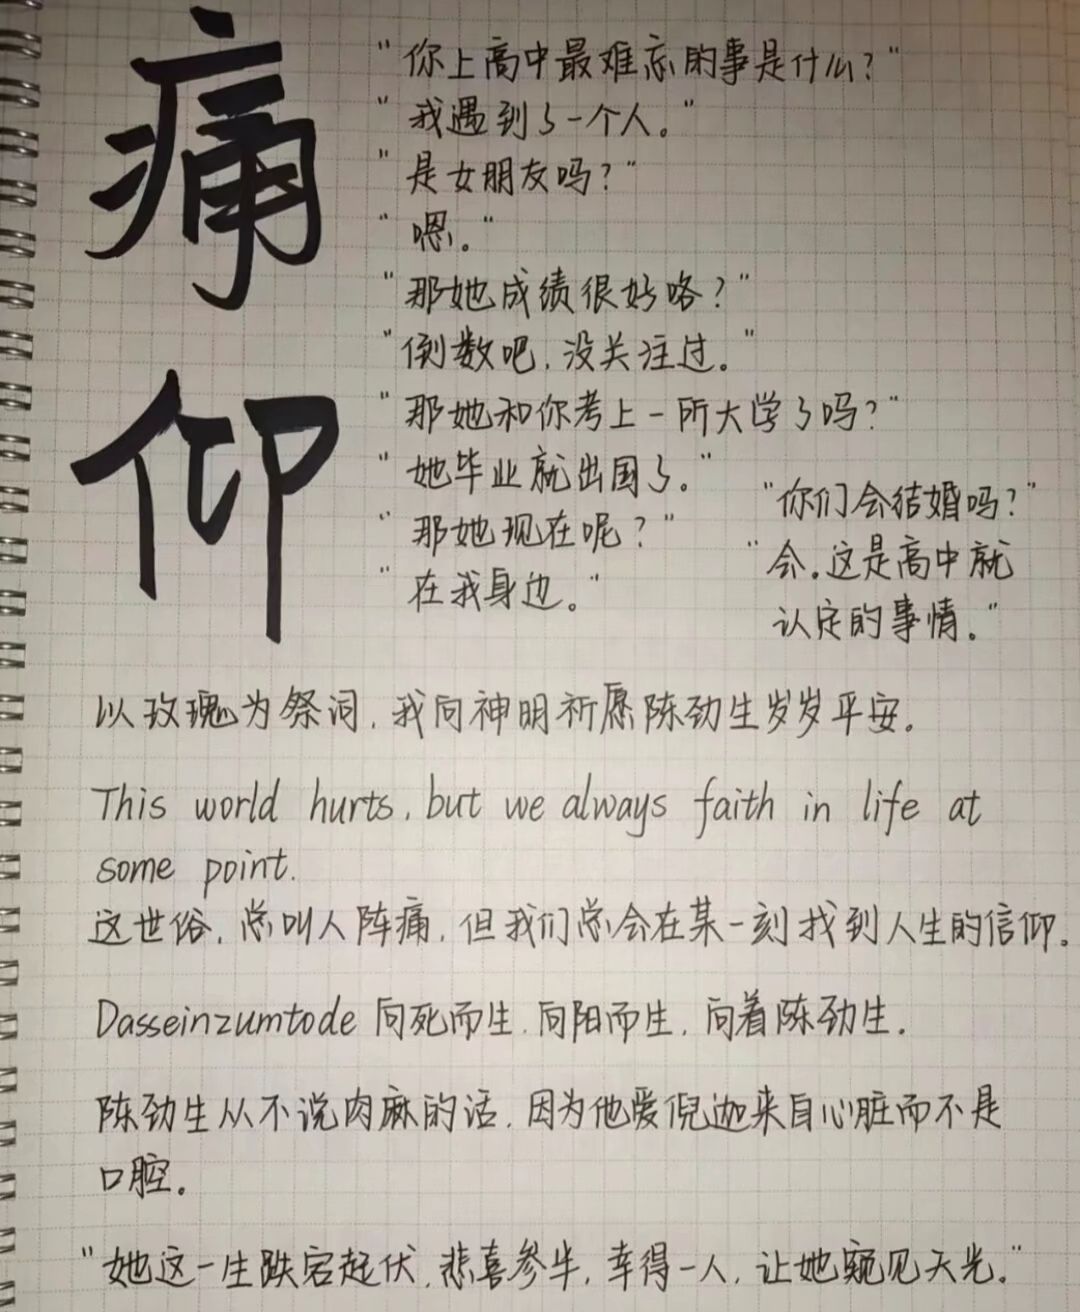 痛仰
"你上高中最难忘的事是什么？"
"我遇到了一个人。"
"是女朋友吗？"
"嗯。"
"那她成绩很好咯？"
"倒数吧，没关注过。"
"那她和你考上一所大学了吗？"
"她毕业就出国了。"
"那她现在呢？"
"在我身边。"
"你们会结婚吗？"
"会。这是高中就
认定的事情。"
以玫瑰为祭词，我向神明祈愿陈劲生岁岁平安。
This world hurts, but we always faith in life at
some point.
这世俗，总叫人阵痛，但我们总会在某一刻找到人生的信仰。
Dasseinzumtode 向死而生，向阳而生，向着陈劲生。
陈劲生从不说肉麻的话，因为他爱倪迦来自心脏而不是
口腔。
"她这一生跌宕起伏，悲喜参半，幸得一人，让她窥见天光。"